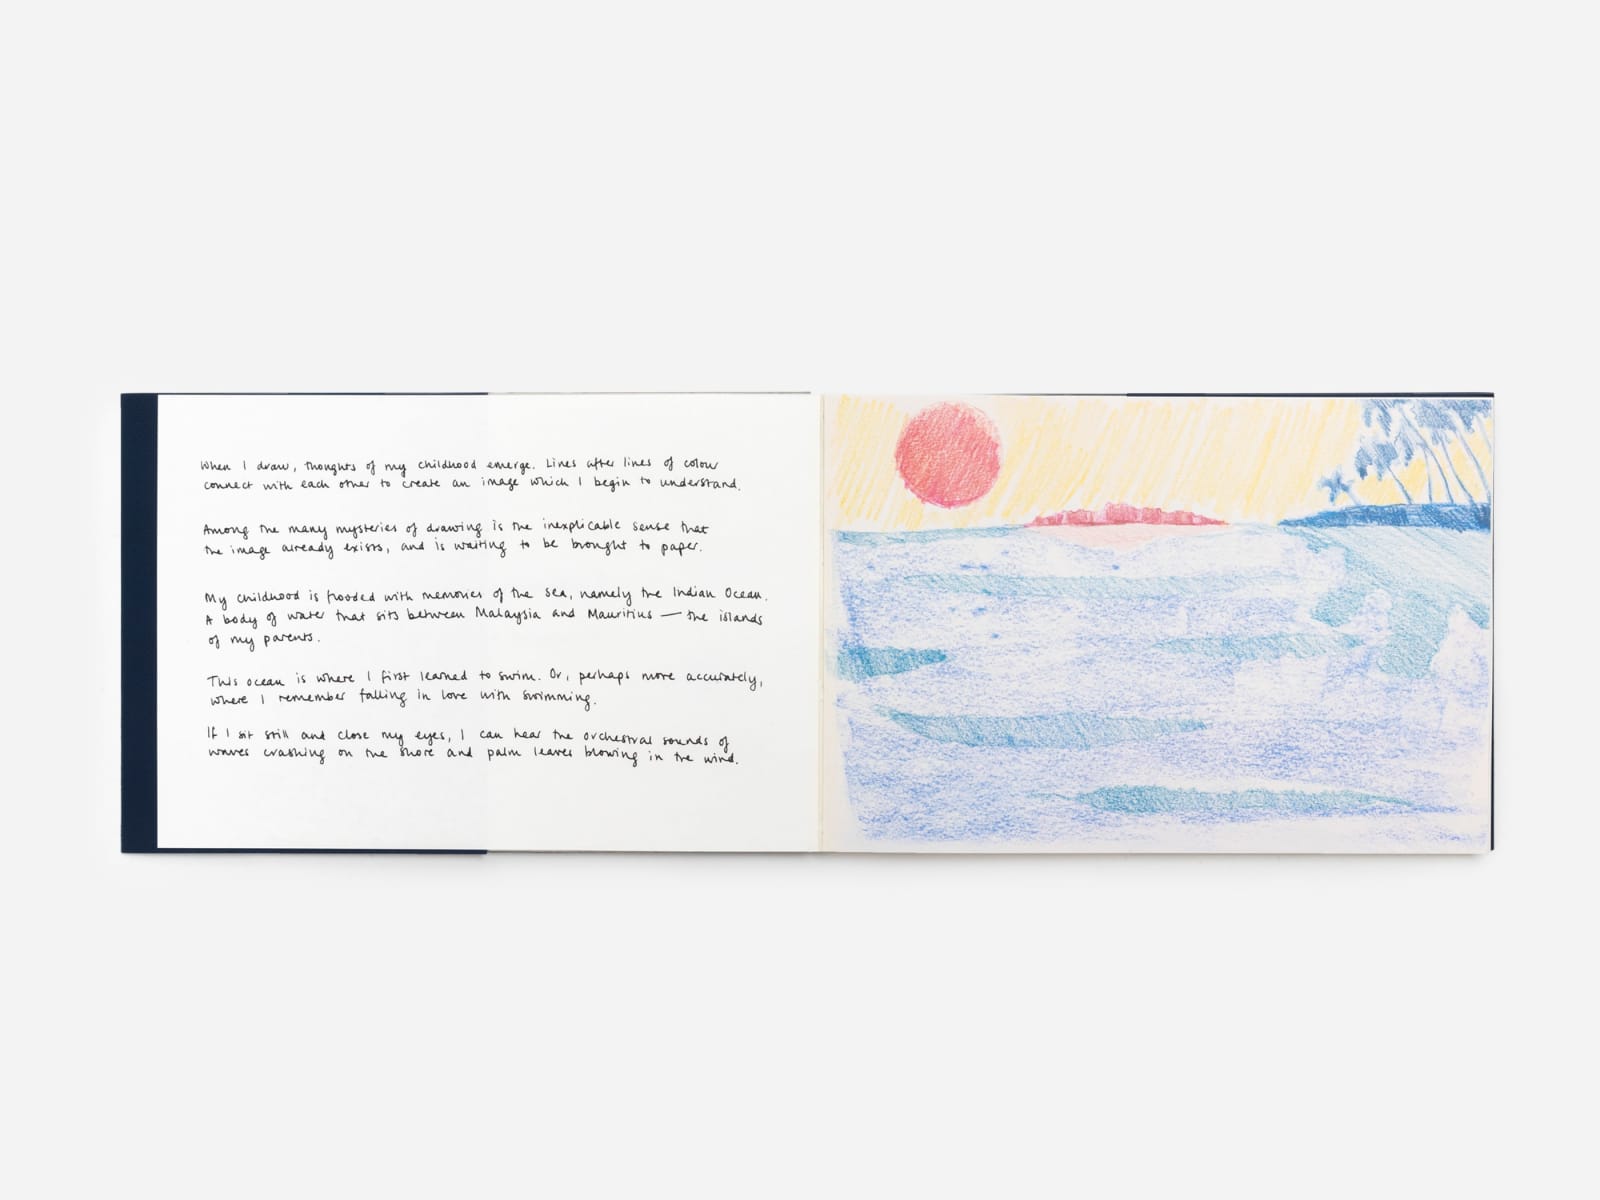 When I draw, thoughts of my childhood emerge. Lines after lines of colour
connect with each other to create an image which I begin to understand.
Among the many mysteries of drawing is the inexplicable sense that
the image already exists, and is waiting to be brought to paper.
My childhood is flooded with memories of the sea, namely the Indian Ocean.
A body of water that sits between Malaysia and Mauritius — the islands
of my parents.
This ocean is where I first learned to swim. Or, perhaps more accurately,
where I remember falling in love with swimming.
If I sit still and close my eyes, I can hear the orchestral sounds of
waves crashing on the shore and palm leaves blowing in the wind.